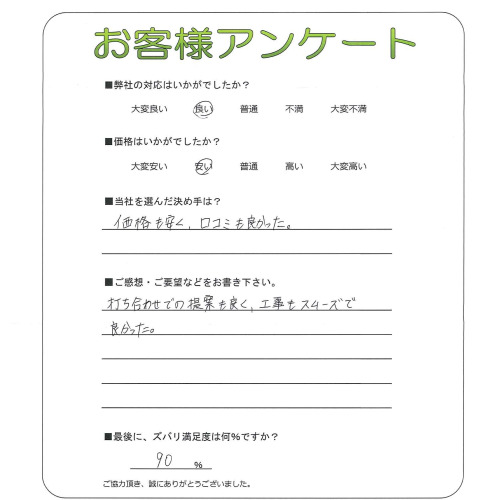 お客様アンケート
■弊社の対応はいかがでしたか？
大変良い 良い 普通 不満 大変不満
■価格はいかがでしたか？
大変安い 安い 普通 高い 大変高い
■当社を選んだ決め手は？
価格も安く、口コミも良かった。
■ご感想・ご要望などをお書き下さい。
打ち合わせでの提案も良く、工事もスムーズで
良かった。
■最後に、ズバリ満足度は何%ですか？
90 %
ご協力頂き、誠にありがとうございました。